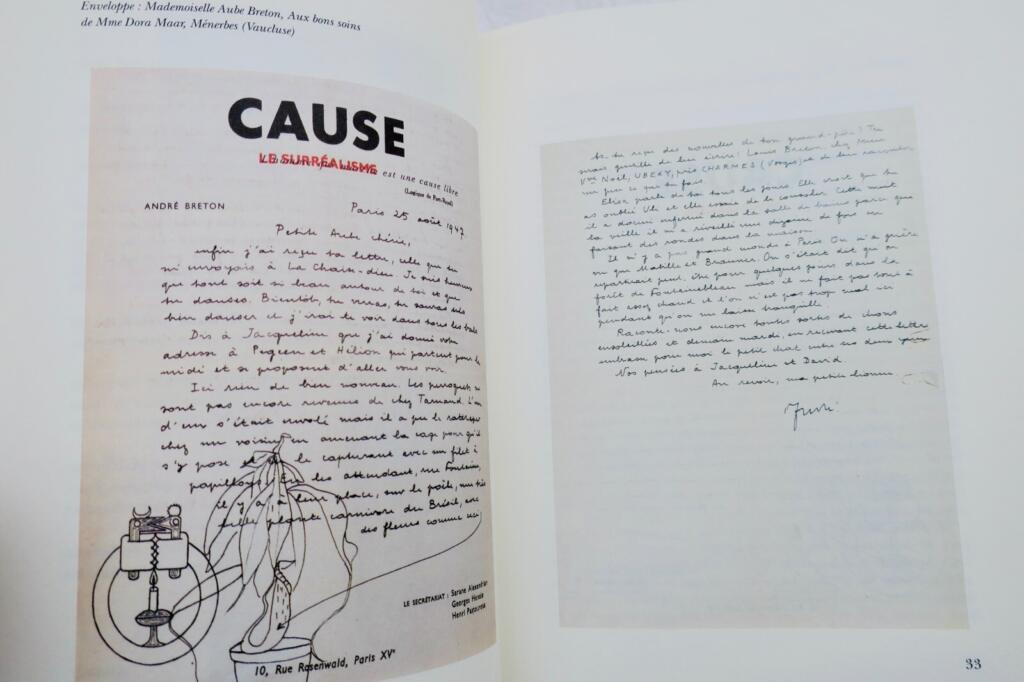 Enveloppe : Mademoiselle Aube Breton, Aux bons soins
de Mme Dora Maar, Ménerbes (Vaucluse)
CAUSE
LE SURRÉALISME
est une cause libre
(Logique de Port-Royal)
ANDRÉ BRETON
Paris 25 août 1947
Petite Aube chérie,
enfin j'ai reçu ta lettre, celle que tu
m'envoyais à La Chaise-Dieu. Je suis heureux
que tout soit si beau autour de toi et que
tu danses. Bientôt, tu verras, tu sauras très
bien danser et j'irai te voir dans tous les bals
Dis à Jacqueline que j'ai donné votre
adresse à Pegeen et Hélion qui partent pour le
midi et se proposent d'aller vous voir.
Ici rien de bien nouveau. Les perroquets ne
sont pas encore revenus de chez Tarnaud. L'un
d'eux s'était envolé mais il a pu le rattraper
chez un voisin en amenant la cage pour qu'il
s'y pose et en le capturant avec un filet à
papillons. En les attendant, rue Fontaine,
il y a à leur place, sur le poêle, une très
belle plante carnivore du Brésil, avec
des fleurs comme ceci
LE SECRÉTARIAT : Sarane Alexandrian
Georges Henein
Henri Pastoureau
10, Rue Rosenwald, Paris XVᵉ
As-tu reçu des nouvelles de ton grand-père ? Tu
serais gentille de leur écrire : Louis Breton chez
Vve Noël, UBEXY, près CHARMES (Vosges) et de leur raconter
un peu ce que tu fais.
Elisa parle de toi tous les jours. Elle croit que tu
as oublié Uli et elle essaie de le consoler. Cette nuit
il a dormi enfermé dans la salle de bains parce que
la veille il m'a réveillé une dizaine de fois en
faisant des rondes dans la maison.
Il n'y a pas grand monde à Paris. On n'a guère
vu que Matille et Brauner. On s'était dit qu'on
repartirait peut-être pour quelques jours dans la
forêt de Fontainebleau mais il ne fait pas tout à
fait assez chaud et l'on n'est pas trop mal ici
pendant qu'on me laisse tranquille.
Raconte-nous encore toutes sortes de choses
ensoleillées et demain mardi, en recevant cette lettre
embrasse pour moi le petit chat entre ses deux yeux
Nos pensées à Jacqueline et David.
Au revoir, ma petite
33